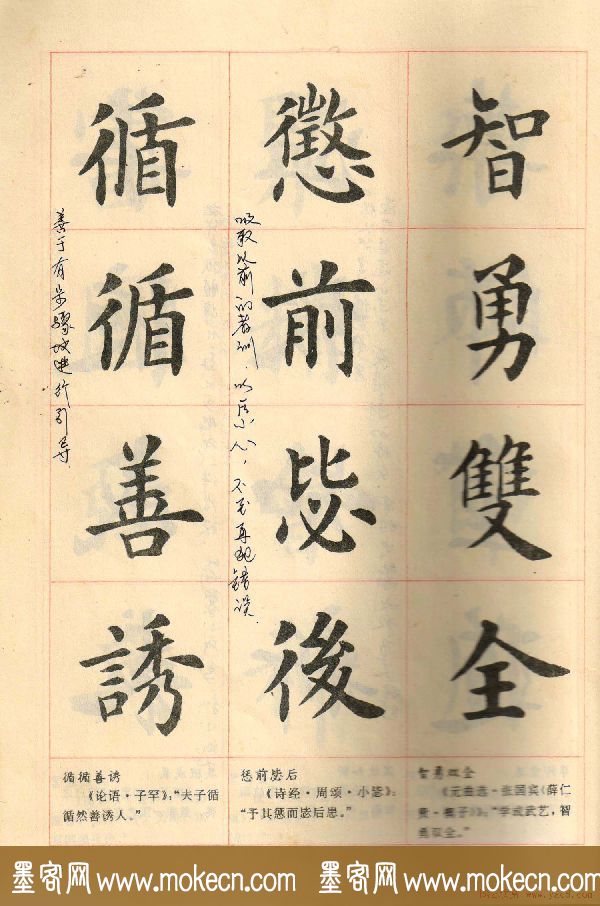 智勇雙全
懲前毖後
吸取以前的教训，以后小心，不至再犯错误．
循循善誘
善于有步骤地进行引导．
智勇双全
《元曲选·张国宾〈薛仁
贵·楔子〉》：“学成武艺，智
勇双全。”
惩前毖后
《诗经·周颂·小毖》：
“予其惩而毖后患。”
循循善诱
《论语·子罕》：“夫子循
循然善诱人。”
墨客网 www.mokecn.com 墨客网 www.mokecn.com